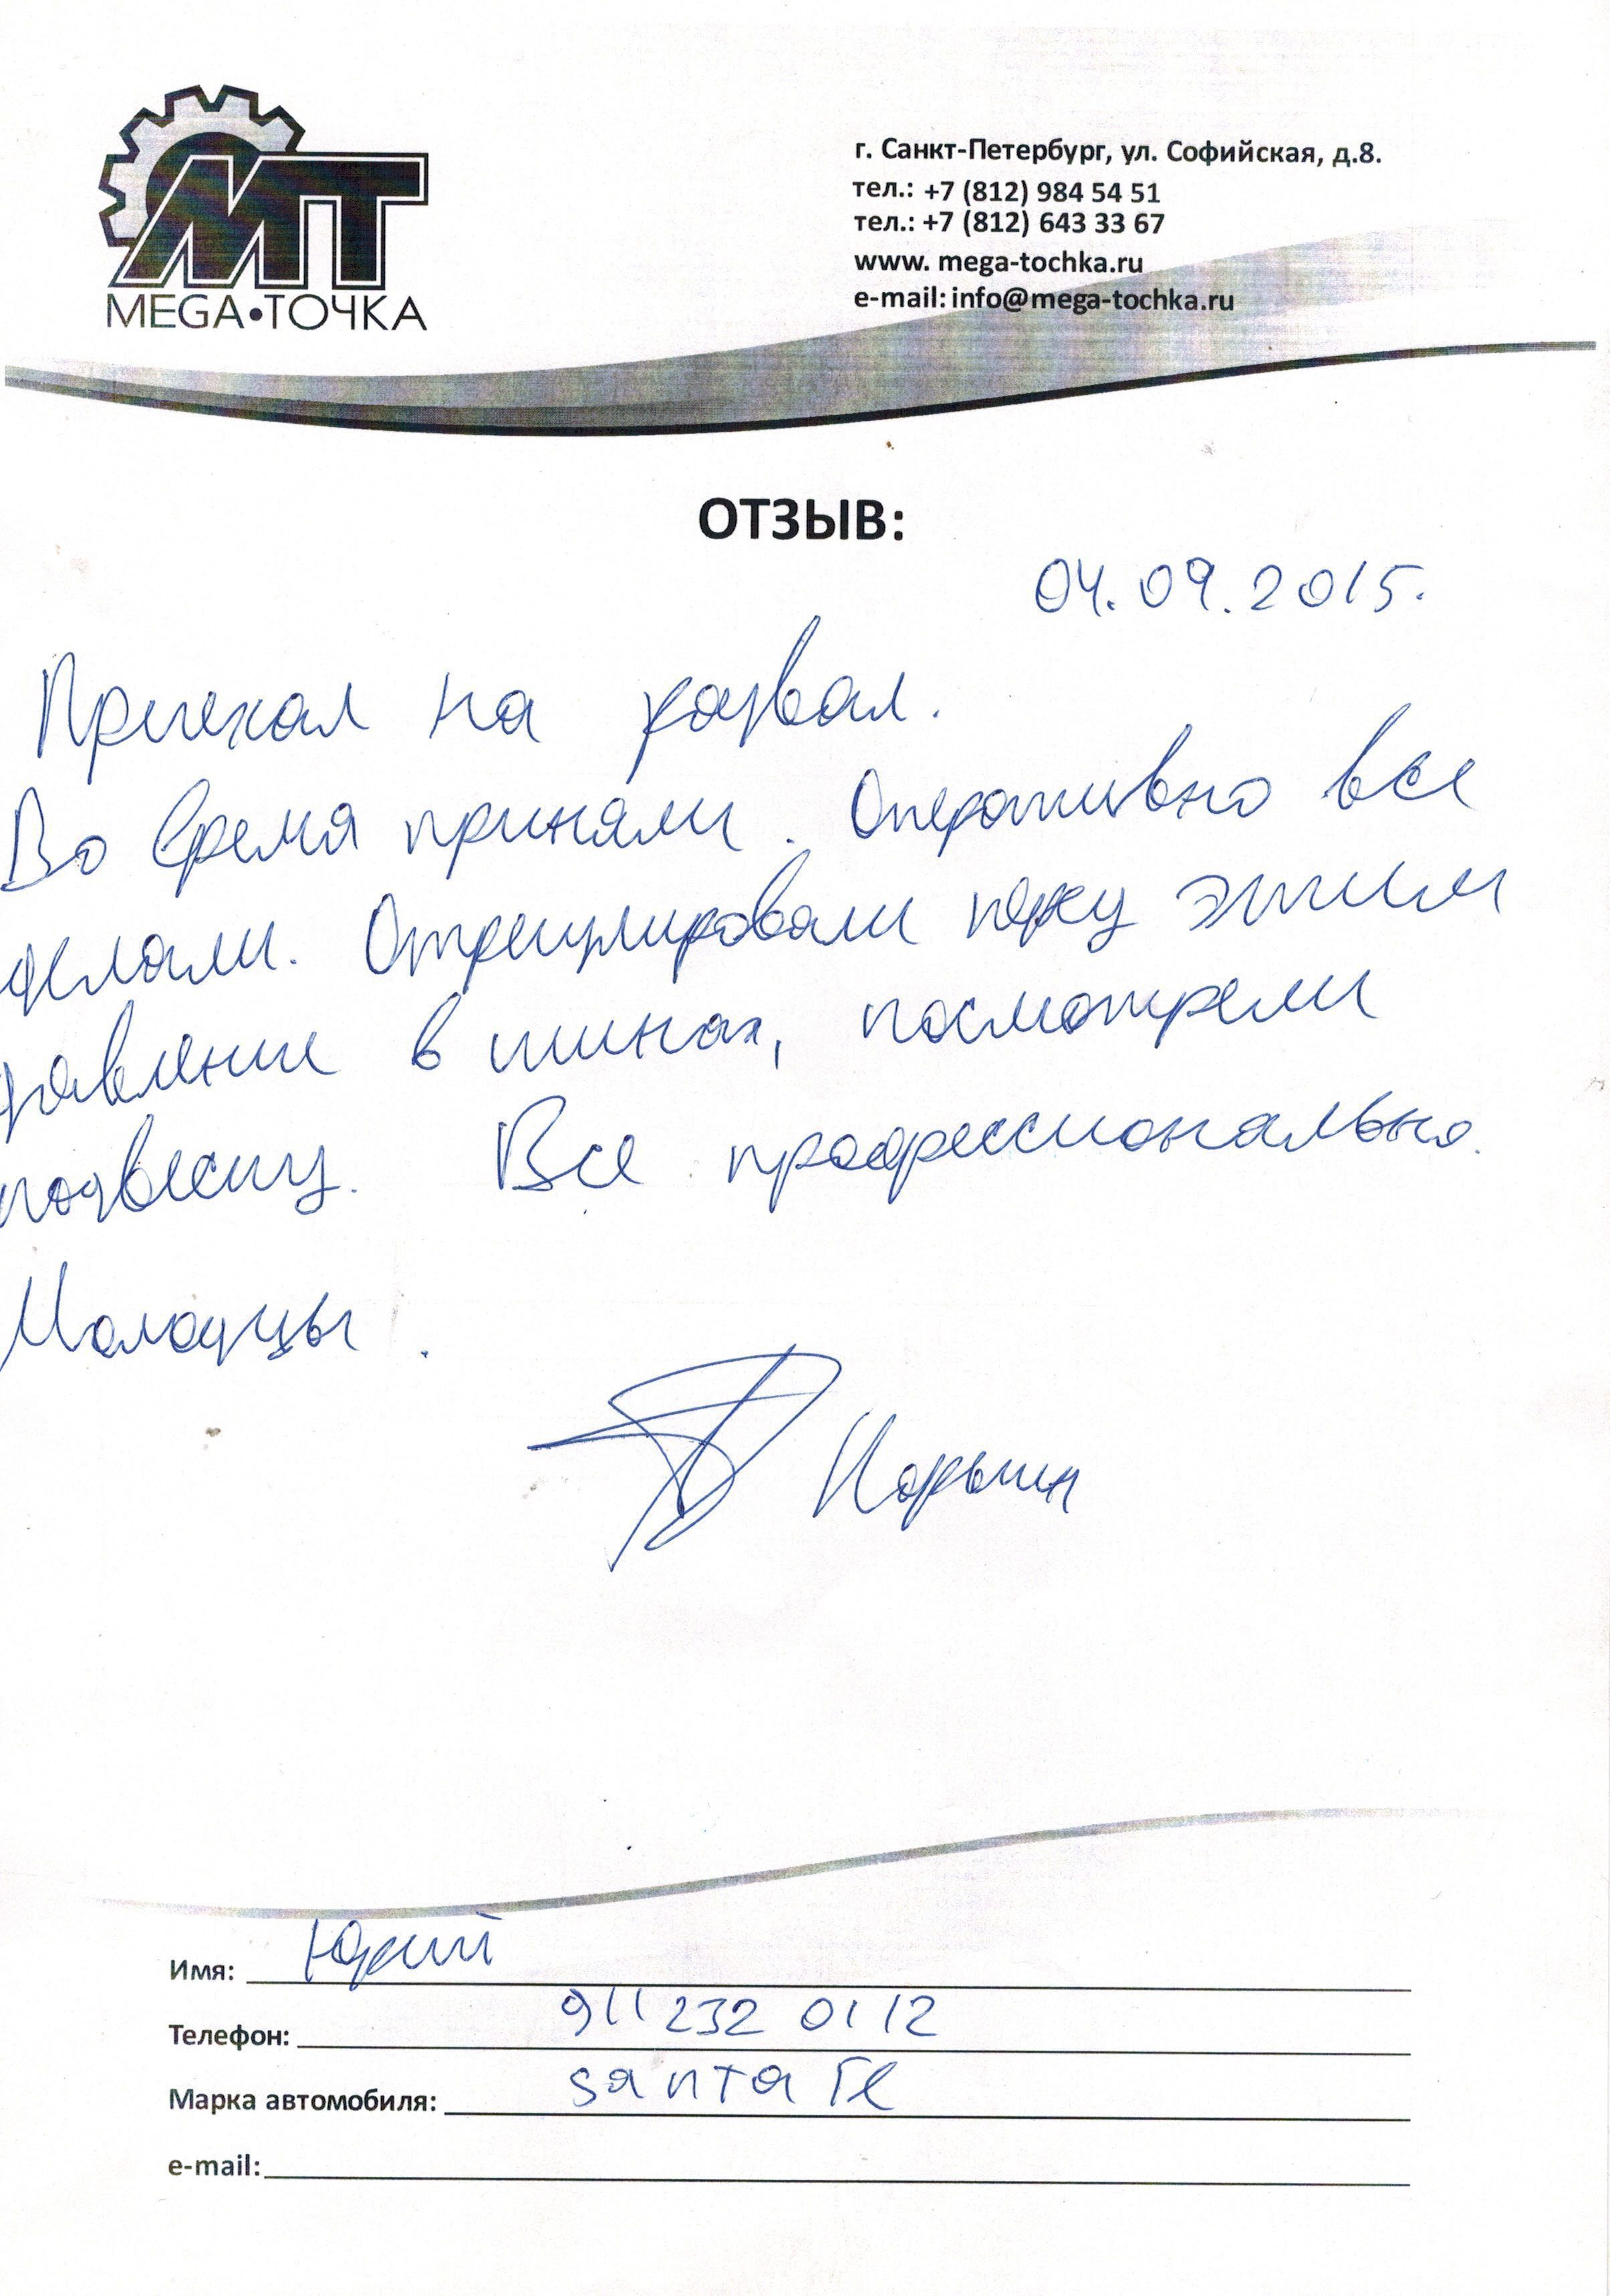 МТ
MEGA•ТОЧКА
г. Санкт-Петербург, ул. Софийская, д.8.
тел.: +7 (812) 984 54 51
тел.: +7 (812) 643 33 67
www. mega-tochka.ru
e-mail: info@mega-tochka.ru
ОТЗЫВ:
04.09.2015.
Приехал на развал.
Во время приняли. Оперативно все
делали. Отрегулировали перед этим
давление в шинах, посмотрели
подвеску. Все профессионально.
Молодцы.
Имя: Юрий
Телефон: 911 232 0112
Марка автомобиля: Santa Fe
e-mail: